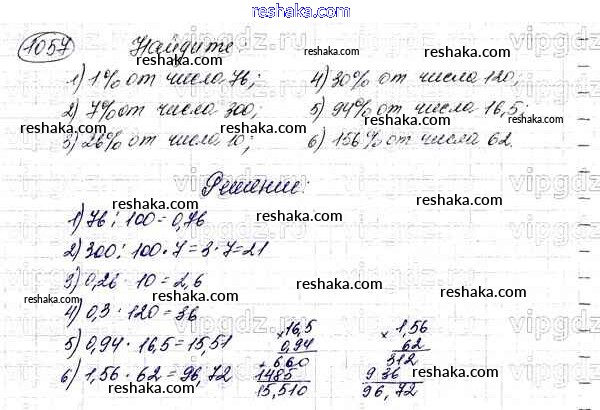 reshaka.com
1057 Найдите:
1) 1% от числа 76; 4) 30% от числа 120;
reshaka.com reshaka.com
2) 7% от числа 300; 5) 94% от числа 16,5;
reshaka.com reshaka.com
3) 26% от числа 10; 6) 156% от числа 62.
reshaka.com reshaka.com
Решение:
reshaka.com reshaka.com
1) 76 : 100 = 0,76
2) 300 : 100 · 7 = 3 · 7 = 21
reshaka.com reshaka.com
3) 0,26 · 10 = 2,6
reshaka.com reshaka.com
4) 0,3 · 120 = 36
5) 0,94 · 16,5 = 15,51
6) 1,56 · 62 = 96,72
× 16,5
0,94
+ 660
1485
15,510
× 1,56
62
312
936
96,72
reshaka.com reshaka.com
reshaka.com